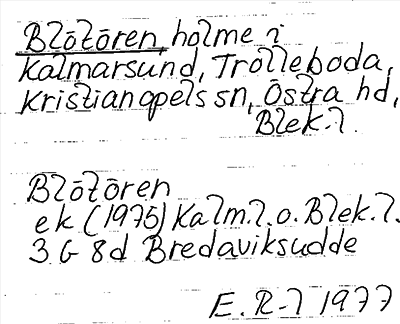 Blötören, holme i
Kalmarsund, Trolleboda,
Kristianopels sn, Östra hd,
Blek.l.
Blötören
ek (1975) Kalm.l. o. Blek.l.
3 G 8d Bredaviksudde
E. R-l 1977